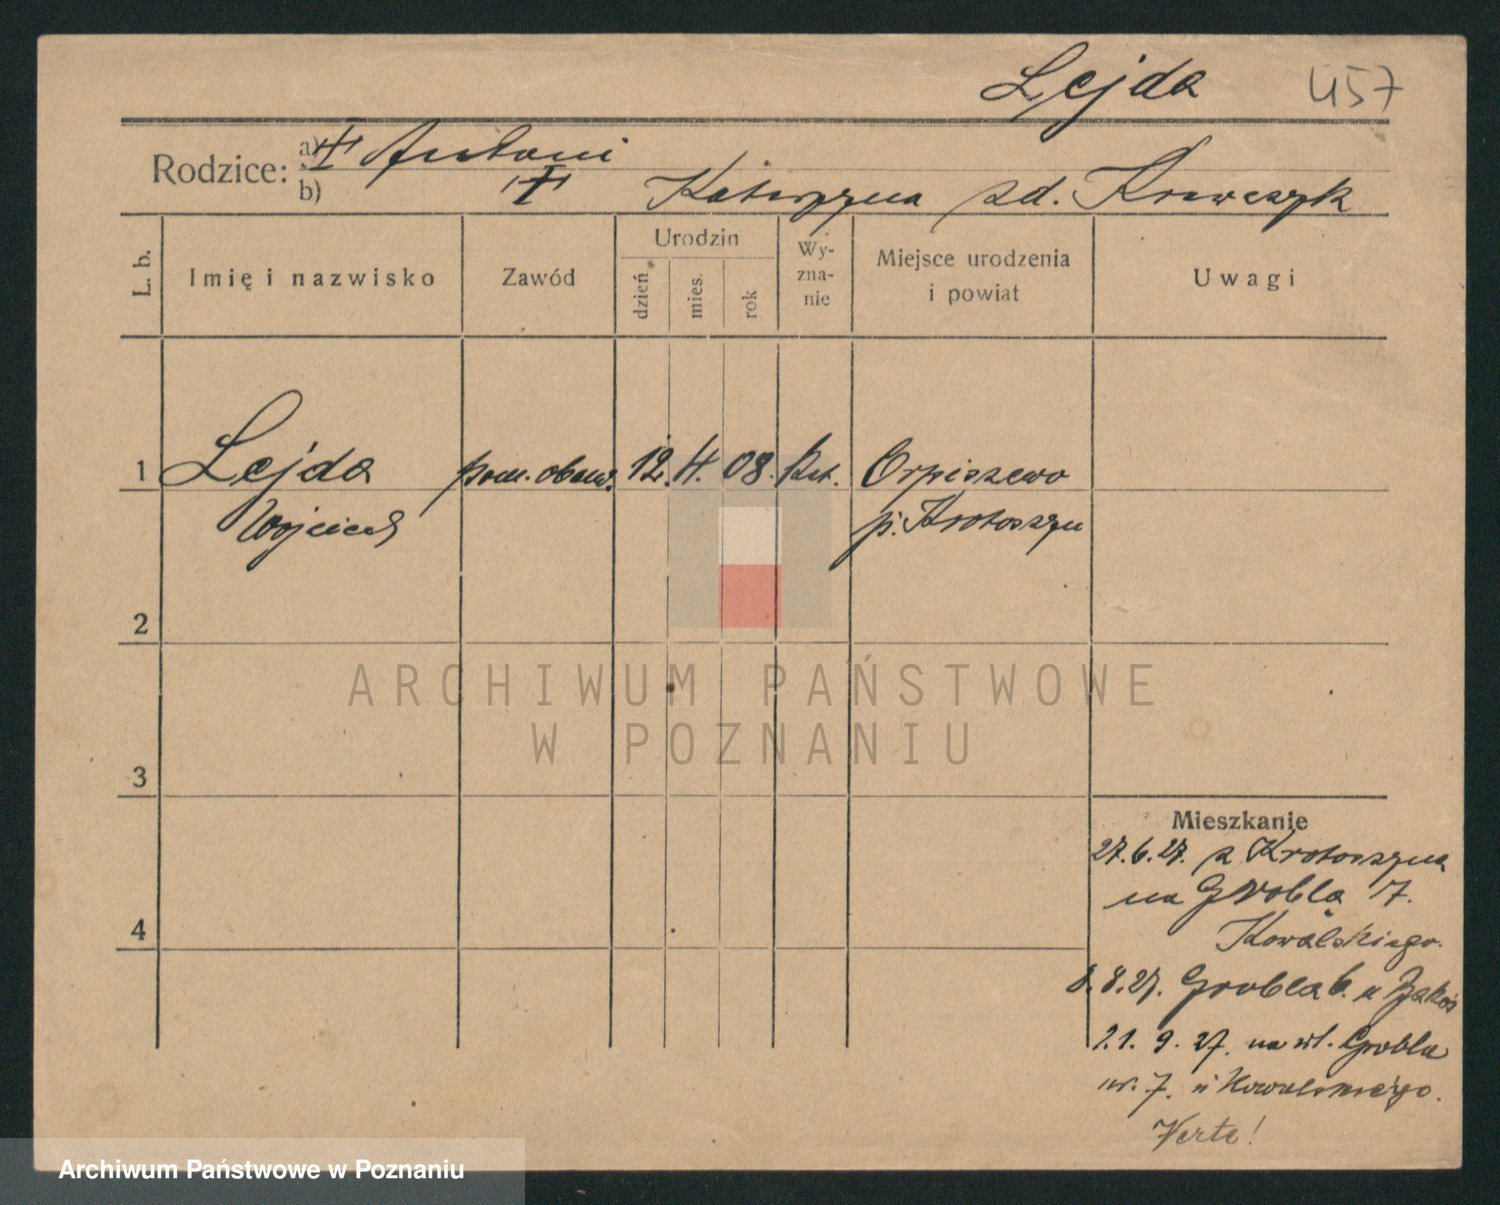 Lejda 457
Rodzice: a) Antoni
b) Katarzyna zd. Krawczyk
L. b. Imię i nazwisko Zawód Urodzin dzień mies. rok Wyznanie Miejsce urodzenia i powiat Uwagi
1 Lejda pom. 12. 4. 08. kat. Orpiszewo
Wojciech p. Krotoszyn
2
ARCHIWUM PAŃSTWOWE
W POZNANIU
3
Mieszkanie
27.6.27. z Krotoszyna
na Groblą 7.
4
Kowalskiego.
8.8.27. Grobla 6. u
21. 9. 27. na ul. Grobla
nr. 7. u Kowalskiego.
Verte!
Archiwum Państwowe w Poznaniu